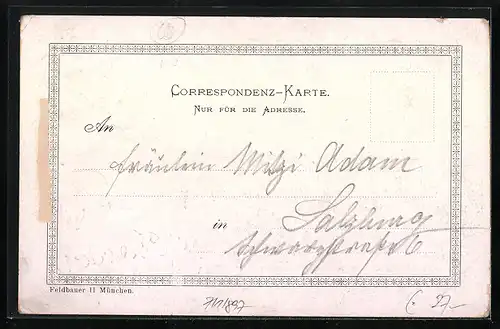 CORRESPONDENZ-KARTE.
NUR FÜR DIE ADRESSE.
An
Fräulein Mitzi Adam
in Salzburg
Schwarzstraße 6
Feldbauer II München.
27.-